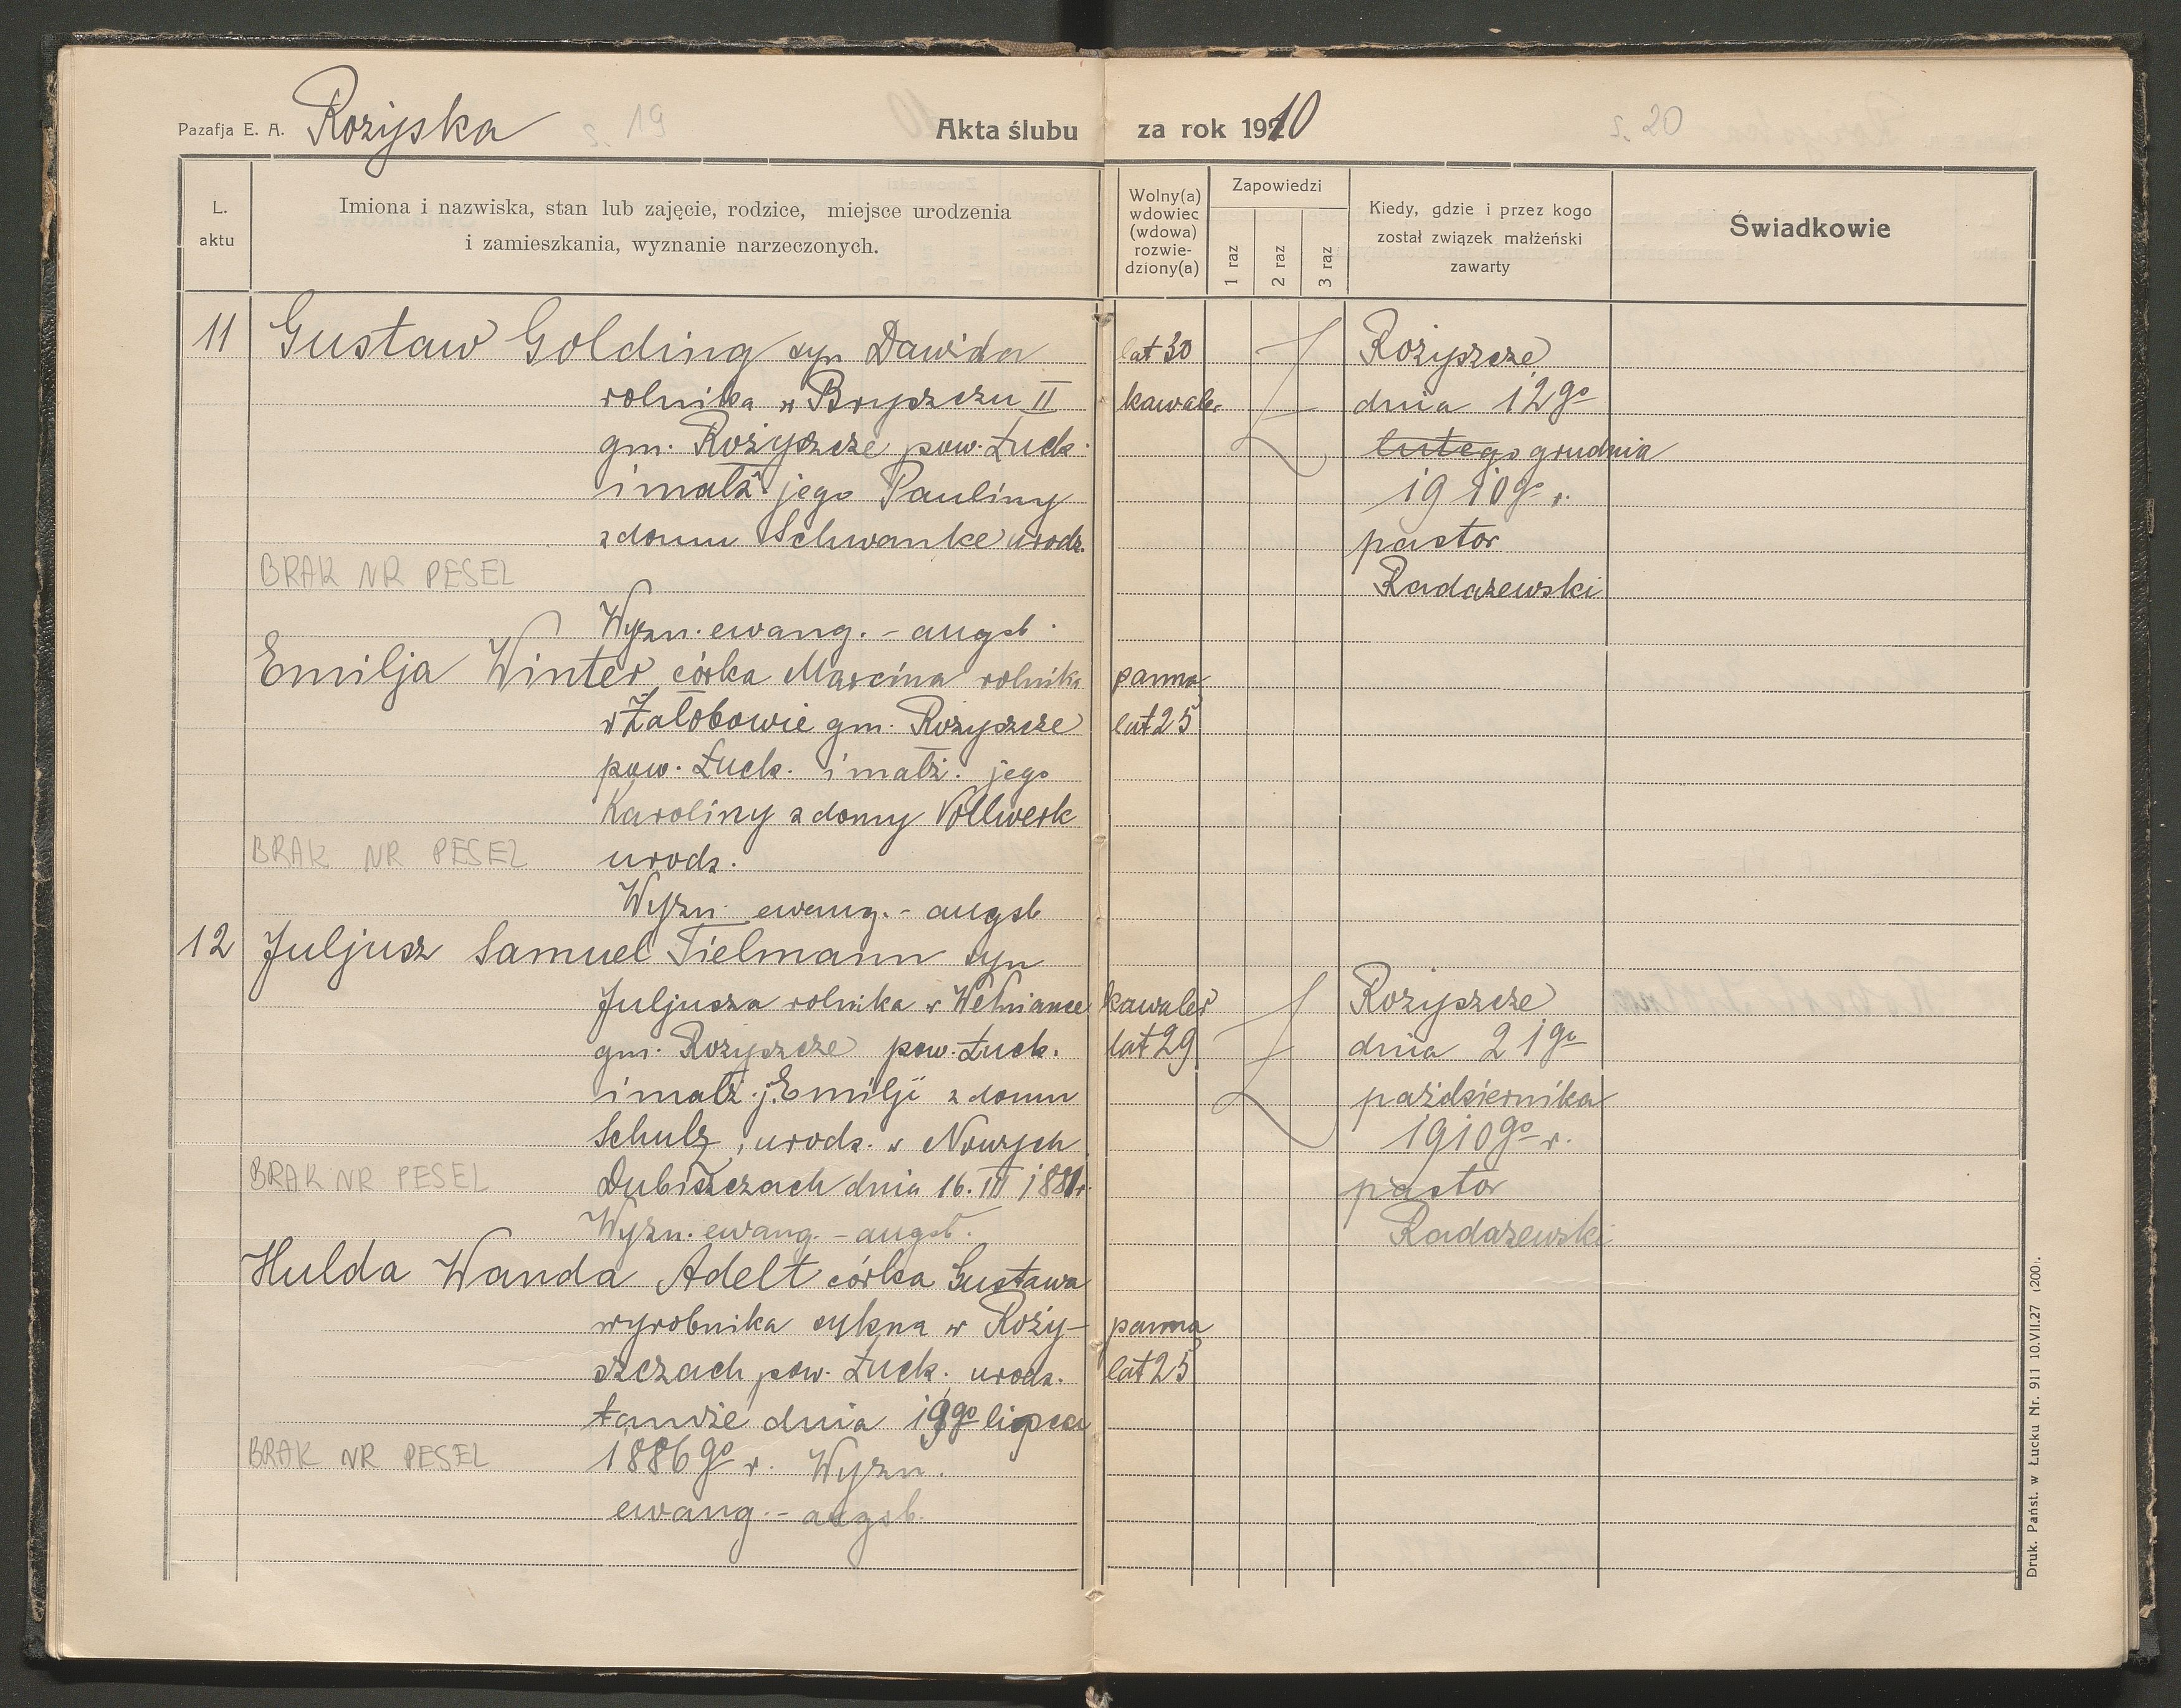 Pazafja E. A. Rożyska
s. 19
Akta ślubu za rok 1910
s. 20
L. aktu
Imiona i nazwiska, stan lub zajęcie, rodzice, miejsce urodzenia
i zamieszkania, wyznanie narzeczonych.
Wolny(a)
wdowiec
(wdowa)
rozwie-
dziony(a)
Zapowiedzi
1 raz
2 raz
3 raz
Kiedy, gdzie i przez kogo
został związek małżeński
zawarty
Świadkowie
11 Gustaw Golding syn Dawida
rolnika w Bryszczu II
gm. Rożyszcze pow. Łuck.
i małż. jego Pauliny
z domu Schwanke urodz.
BRAK NR PESEL
Wyzn. ewang. - augsb.
lat 30
kawaler
Rożyszcze
dnia 12go
lutego grudnia
1910go r.
pastor
Radaszewski
Emilja Winter córka Marcina rolnika
w Załobowie gm. Rożyszcze
pow. Łuck. i małż. jego
Karoliny z domy Vollwerk
BRAK NR PESEL urodz.
Wyzn. ewang. - augsb
panna
lat 25
12 Juljusz Samuel Tielmann syn
Juljusza rolnika w Wełniance
gm. Rożyszcze pow. Łuck.
i małż. j. Emilji z domu
Schulz, urodz. w Nowych
BRAK NR PESEL Dubiszczach dnia 16. III 1881r.
Wyzn. ewang. - augsb.
kawaler
lat 29
Rożyszcze
dnia 21go
października
1910go r.
pastor
Radaszewski
Hulda Wanda Adelt córka Gustawa
wyrobnika sukna w Roży-
szczach pow. Łuck. urodz.
tamże dnia 19go lipca
BRAK NR PESEL 1886go r. Wyzn.
ewang. - augsb.
panna
lat 25
Druk. Państ. w Łucku Nr. 911 10.VII.27 (200).